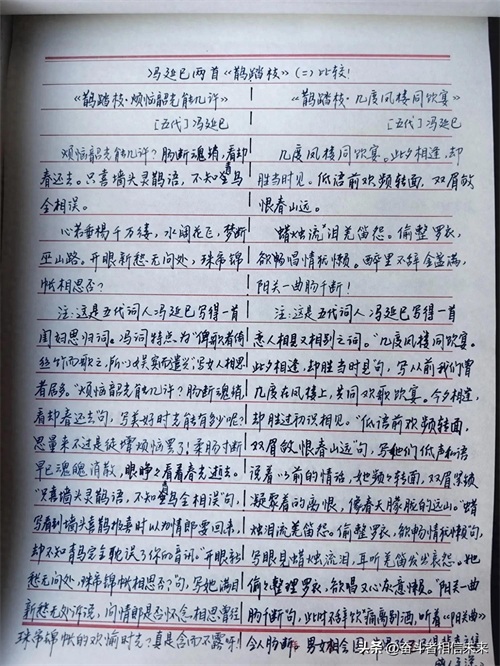 冯延巳两首《鹊踏枝》(二)比较!
《鹊踏枝·烦恼韶光能几许》
[五代]冯延巳
烦恼韶光能几许?肠断魂销,看却
春还去。只喜墙头灵鹊语,不知青鸟
全相误。
心若垂杨千万缕,水阔花飞,梦断
巫山路。开眼新愁无问处,珠帘锦
帐相思否?
注:这是五代词人冯延巳写得一首
闺妇思归词。冯词特点为“俾歌者倚
丝竹而歌之,所以娱宾而遣兴”,写女人相思
者居多。“烦恼韶光能几许?肠断魂销,
看却春还去”句,写美好时光能有多少呢?
思量来不过是徒增烦恼罢了!柔肠寸断
早已魂魄消散,眼睁看着春光逝去。
“只喜墙头灵鹊语,不知青鸟全相误”句,
写看到墙头喜鹊报喜时以为情郎要回来,
却不知青鸟完全耽误了你的音讯。“开眼新
愁无问处,珠帘锦帐相思否?”句,写她满目
新愁无处诉说,问情郎是否怀念、相思曾经
珠帘锦帐的欢愉时光?真是含而不露呀!
《鹊踏枝·几度凤楼同饮宴》
[五代]冯延巳
几度凤楼同饮宴。此夕相逢,却
胜当时见。低语前欢频转面,双眉敛
恨春山远。
蜡烛流泪羌笛怨。偷整罗衣,
欲唱情犹懒。醉里不辞金盏满,
阳关一曲肠千断!
注:这是五代词人冯延巳写得一首
恋人相见又相别之词。“几度凤楼同饮宴。
此夕相逢,却胜当时见”句,写以前我们曾
几度在凤楼上,共同欢歌饮宴。今夕相逢,
却胜过初识相见。“低语前欢频转面,
双眉敛恨春山远”句,写她们低声私语
说着以前的情话,她频转面,双眉紧皱
凝聚着的离恨,像春天朦胧的远山。“蜡
烛泪流羌笛怨。偷整罗衣,欲唱情犹懒”句,
写眼见蜡烛流泪,耳听羌笛发出哀怨。她
偷整理罗衣,欲唱又心灰意懒。“阳关一曲
肠千断”句,此时不辞饮痛离别酒,听着《阳关曲》
令人肠断。男女相会
头条 @奋斗者相信未来